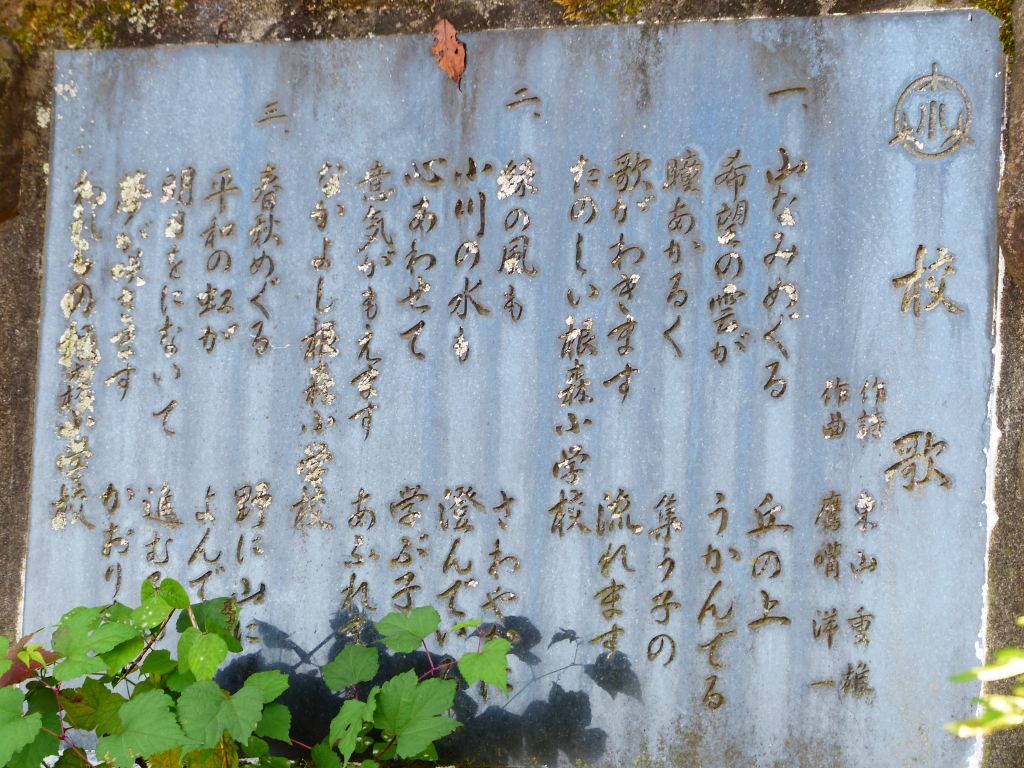 小
校歌
作詩 東山重雄
作曲 鷹觜洋一
一、
山なみめぐる 丘の上
希望の雲が うかんでる
瞳あかるく 集う子の
歌がわきます 流れます
たのしい根森小学校
二、
緑の風も さわや
小川の水も 澄んでい
心あわせて 学ぶ子
意気がもえます あふれま
なかよし根森小学校
三、
春秋めぐる 野に山に
平和の虹が よんで
明日をにないて 進む
夢が咲きます かおり
の根森小学校